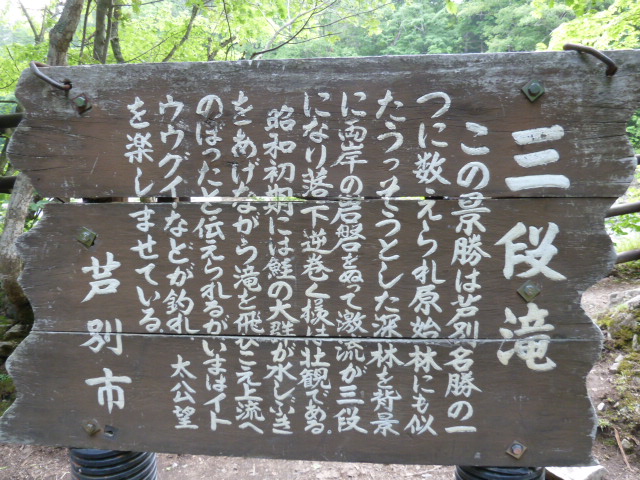 三段滝
この景勝は芦別名勝の一
つに数えられ原始林にも似
たうっそうとした深林を背景
に両岸の岩磐をぬって激流が三段
になり落下逆巻く様は壮観である
昭和初期には鮭の大群が水しぶき
をあげながら滝を飛びこえ上流へ
のぼったと伝えられるがいまはイト
ウウグイなどが釣れ太公望
を楽しませている
芦別市